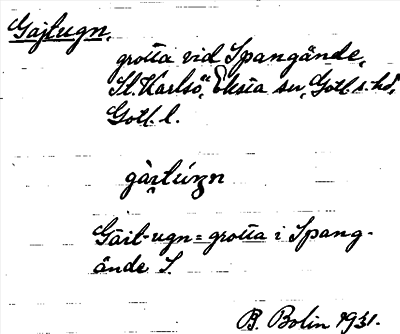 Gajlugn,
grotta vid Spangände,
St. Karlsö, Eksta sn, Gotl. s. hd,
Gotl. l.
gàrlúgn
Gäil-ugn = grotta i Spang-
ände S.
B. Bolin 1931.